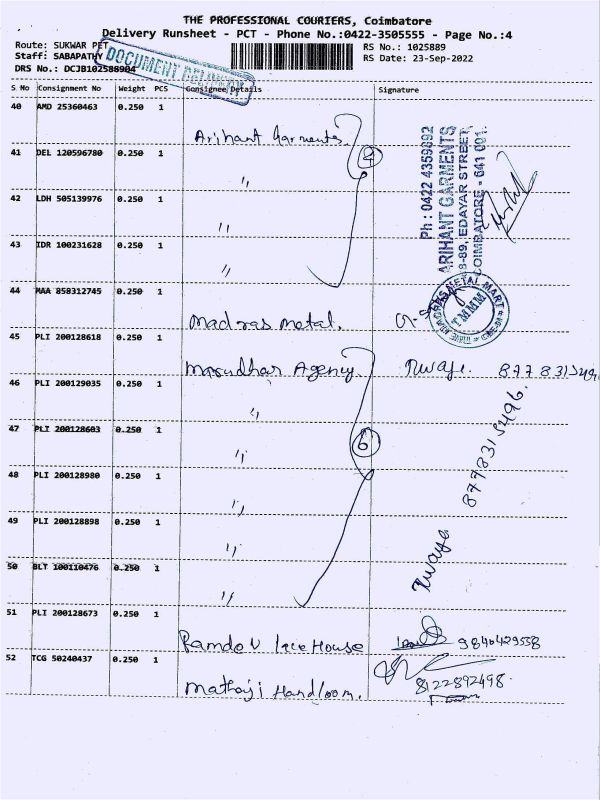 THE PROFESSIONAL COURIERS, Coimbatore
Delivery Runsheet - PCT - Phone No.:0422-3505555 - Page No.:4
Route: SUKWAR PET
RS No.: 1025889
Staff: SABAPATHY
RS Date: 23-Sep-2022
DRS No.: DCJB102588904
DOCUMENT DELIVERY
S No Consignment No Weight PCS Consignee Details Signature
40 AMD 25360463 0.250 1
Arihant Garments
41 DEL 120596780 0.250 1
"
42 LDH 505139976 0.250 1
"
43 IDR 100231628 0.250 1
"
Ph : 0422 4359892
ARIHANT GARMENTS
EDAYAR STREET,
COIMBATORE - 641 001.
44 MAA 858312745 0.250 1
Madras Metal.
METAL MART
TMMM
45 PLI 200128618 0.250 1
Agency. 
46 PLI 200129035 0.250 1
"
47 PLI 200128603 0.250 1
"
6
48 PLI 200128980 0.250 1
"
49 PLI 200128898 0.250 1
"
8778315496.
50 BLT 100110476 0.250 1
"
51 PLI 200128673 0.250 1
Ramdev Lace House 9840429558
52 TCG 50240437 0.250 1
Mathaji Handloom. 8122892498.